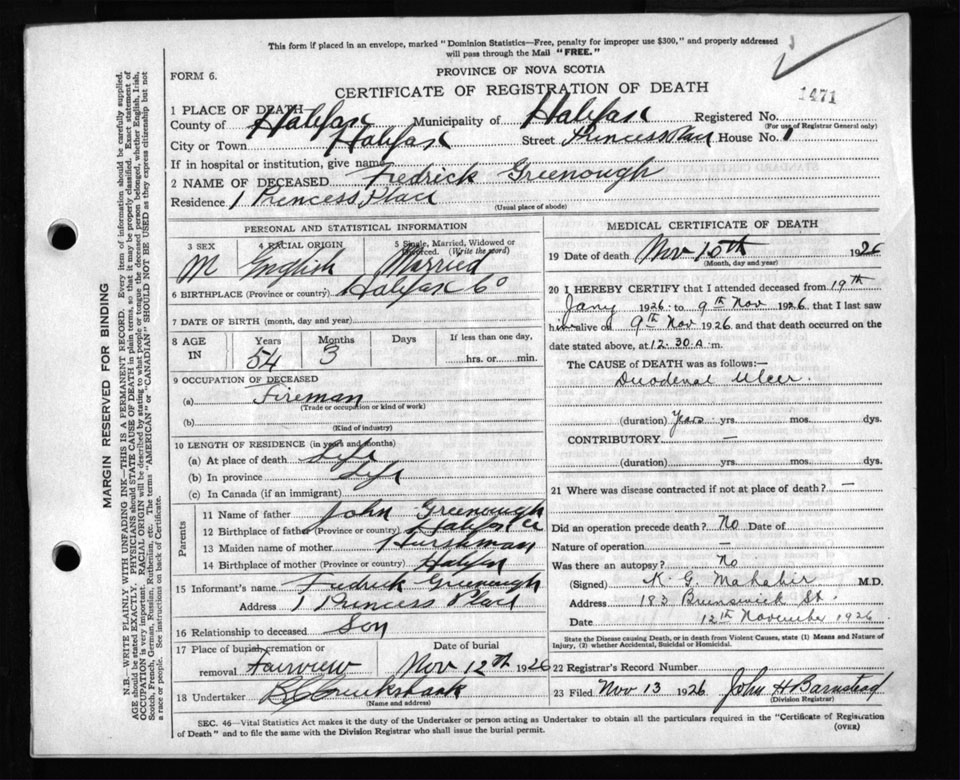 This form if placed in an envelope, marked "Dominion Statistics—Free, penalty for improper use $300," and properly addressed
will pass through the Mail "FREE."
FORM 6.
PROVINCE OF NOVA SCOTIA
CERTIFICATE OF REGISTRATION OF DEATH
1471
1 PLACE OF DEATH
County of Halifax Municipality of Halifax Registered No.
(For use of Registrar General only)
City or Town Halifax Street Princess Place House No. 1
If in hospital or institution, give name
2 NAME OF DECEASED Fredrick Greenough
Residence 1 Princess Place
(Usual place of abode)
PERSONAL AND STATISTICAL INFORMATION
3 SEX 4 RACIAL ORIGIN 5 Single, Married, Widowed or Divorced. (Write the word)
M English Married
6 BIRTHPLACE (Province or country) Halifax Co
7 DATE OF BIRTH (month, day and year)
8 AGE IN Years Months Days If less than one day,
54 3 hrs. or min.
9 OCCUPATION OF DECEASED
(a) Fireman
(Trade or occupation or kind of work)
(b)
(Kind of industry)
10 LENGTH OF RESIDENCE (in years and months)
(a) At place of death Life
(b) In province Life
(c) In Canada (if an immigrant)
Parents
11 Name of father John Greenough
12 Birthplace of father (Province or country) Halifax Co
13 Maiden name of mother Hurshman
14 Birthplace of mother (Province or country) Halifax
15 Informant's name Fredrick Greenough
Address 1 Princess Place
16 Relationship to deceased Son
17 Place of burial, cremation or removal Fairview Date of burial Nov 12th 1926
18 Undertaker Cruikshank
(Name and address)
MEDICAL CERTIFICATE OF DEATH
19 Date of death Nov 10th 1926
(Month, day and year)
20 I HEREBY CERTIFY that I attended deceased from 19th
Jany 1926 to 9th Nov 1926 that I last saw
him alive on 9th Nov 1926 and that death occurred on the
date stated above, at 12.30 A. m.
The CAUSE OF DEATH was as follows:—
Duodenal Ulcer
(duration) Years yrs. mos. dys.
CONTRIBUTORY —
(duration) yrs. mos. dys.
21 Where was disease contracted if not at place of death? —
Did an operation precede death? No Date of
Nature of operation —
Was there an autopsy? No
(Signed) K G Mahabir M.D.
Address 183 Brunswick St.
Date 12th November 1926
State the Disease causing Death, or in death from Violent Causes, state (1) Means and Nature of
Injury, (2) whether Accidental, Suicidal or Homicidal.
22 Registrar's Record Number
23 Filed Nov 13 1926 John H Barnstead
(Division Registrar)
SEC. 46—Vital Statistics Act makes it the duty of the Undertaker or person acting as Undertaker to obtain all the particulars required in the "Certificate of Registration
of Death" and to file the same with the Division Registrar who shall issue the burial permit.
(OVER)
MARGIN RESERVED FOR BINDING
N.B.—WRITE PLAINLY WITH UNFADING INK—THIS IS A PERMANENT RECORD. Every item of information should be carefully supplied.
AGE should be stated EXACTLY. PHYSICIANS should STATE CAUSE OF DEATH in plain terms, so that it may be properly classified. Exact statement of
OCCUPATION is very important. RACIAL ORIGIN will be described by stating to what people or tongue the deceased person belonged, whether English, Irish,
Scotch, French, German, Russian, Ruthenian, etc. The terms "AMERICAN" or "CANADIAN" SHOULD NOT BE USED as they express citizenship but not
a race or people. See instructions on back of Certificate.